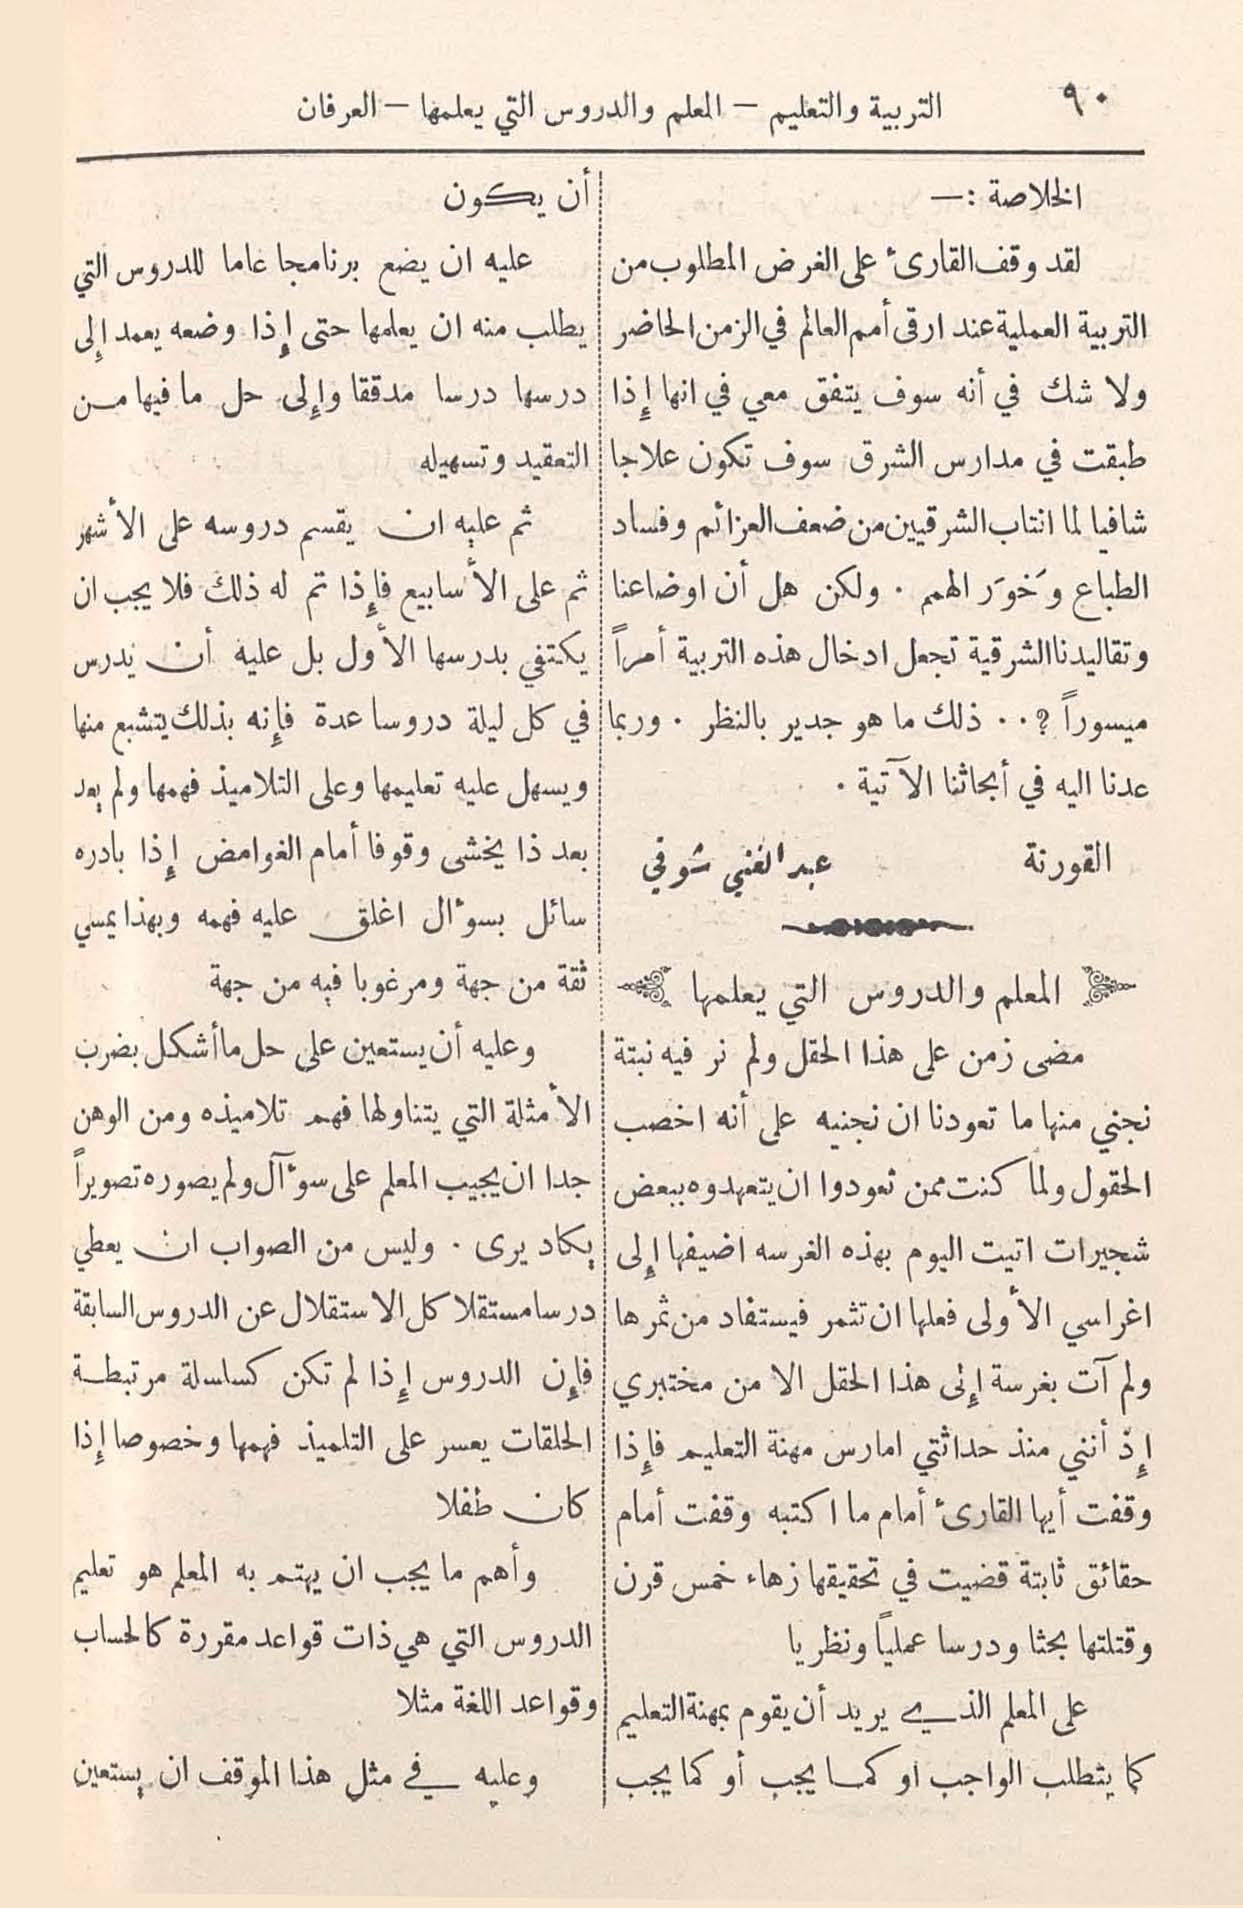 ٩٠
التربية والتعليم — المعلم والدروس التي يعلمها — العرفان
الخلاصة : —
لقد وقف القارئ على الغرض المطلوب من
التربية العملية عند ارقى أمم العالم في الزمن الحاضر
ولا شك في أنه سوف يتفق معي في انها إِذا
طبقت في مدارس الشرق سوف تكون علاجا
شافيا لما انتاب الشرقيين من ضعف العزائم وفساد
الطباع وَخوَر الهمم ٠ ولكن هل أن اوضاعنا
وتقاليدنا الشرقية تجعل ادخال هذه التربية أمراً
ميسوراً ؟٠٠ ذلك ما هو جدير بالنظر ٠ وربما
عدنا اليه في أبحاثنا الآتية ٠
القورنة عبد الغني شوقي
المعلم والدروس التي يعلمها
مضى زمن على هذا الحقل ولم نر فيه نبتة
نجني منها ما تعودنا ان نجنيه على أنه اخصب
الحقول ولما كنت ممن تعودوا ان يتعهدوه ببعض
شجيرات اتيت اليوم بهذه الغرسه اضيفها إِلى
اغراسي الأولى فعلها ان تثمر فيستفاد من ثمرها
ولم آت بغرسة إِلى هذا الحقل الا من مختبري
إِذ أنني منذ حداثتي امارس مهنة التعليم فإذا
وقفت أيها القارئ أمام ما اكتبه وقفت أمام
حقائق ثابتة قضيت في تحقيقها زهاء خمس قرن
وقتلتها بحثا ودرسا عملياً ونظريا
على المعلم الذي يريد أن يقوم بمهنة التعليم
كما يتطلب الواجب او كما يجب أو كما يجب
أن يكون
عليه ان يضع برنامجا عاما للدروس التي
يطلب منه ان يعلمها حتى إِذا وضعه يعمد إِلى
درسها درسا مدققا وإِلى حل ما فيها من
التعقيد وتسهيله
ثم عليه ان يقسم دروسه على الأشهر
ثم على الأسابيع فإِذا تم له ذلك فلا يجب ان
يكتفي بدرسها الأول بل عليه أن يدرس
في كل ليلة دروسا عدة فإِنه بذلك يتشبع منها
ويسهل عليه تعليمها وعلى التلاميذ فهمها ولم يعد
بعد ذا يخشى وقوفا أمام الغوامض إِذا بادره
سائل بسوٴال اغلق عليه فهمه وبهذا يمسي
ثقة من جهة ومرغوبا فيه من جهة
وعليه أن يستعين على حل ما أشكل بضرب
الأمثلة التي يتناولها فهم تلاميذه ومن الوهن
جدا ان يجيب المعلم على سوٴآل ولم يصوره تصويراً
يكاد يرى ٠ وليس من الصواب ان يعطي
درسا مستقلا كل الاستقلال عن الدروس السابقة
فإِن الدروس إِذا لم تكن كسلسلة مرتبطة
الحلقات يعسر على التلميذ فهمها وخصوصا إِذا
كان طفلا
وأهم ما يجب ان يهتم به المعلم هو تعليم
الدروس التي هي ذات قواعد مقررة كالحساب
وقواعد اللغة مثلا
وعليه في مثل هذا الموقف ان يستعين